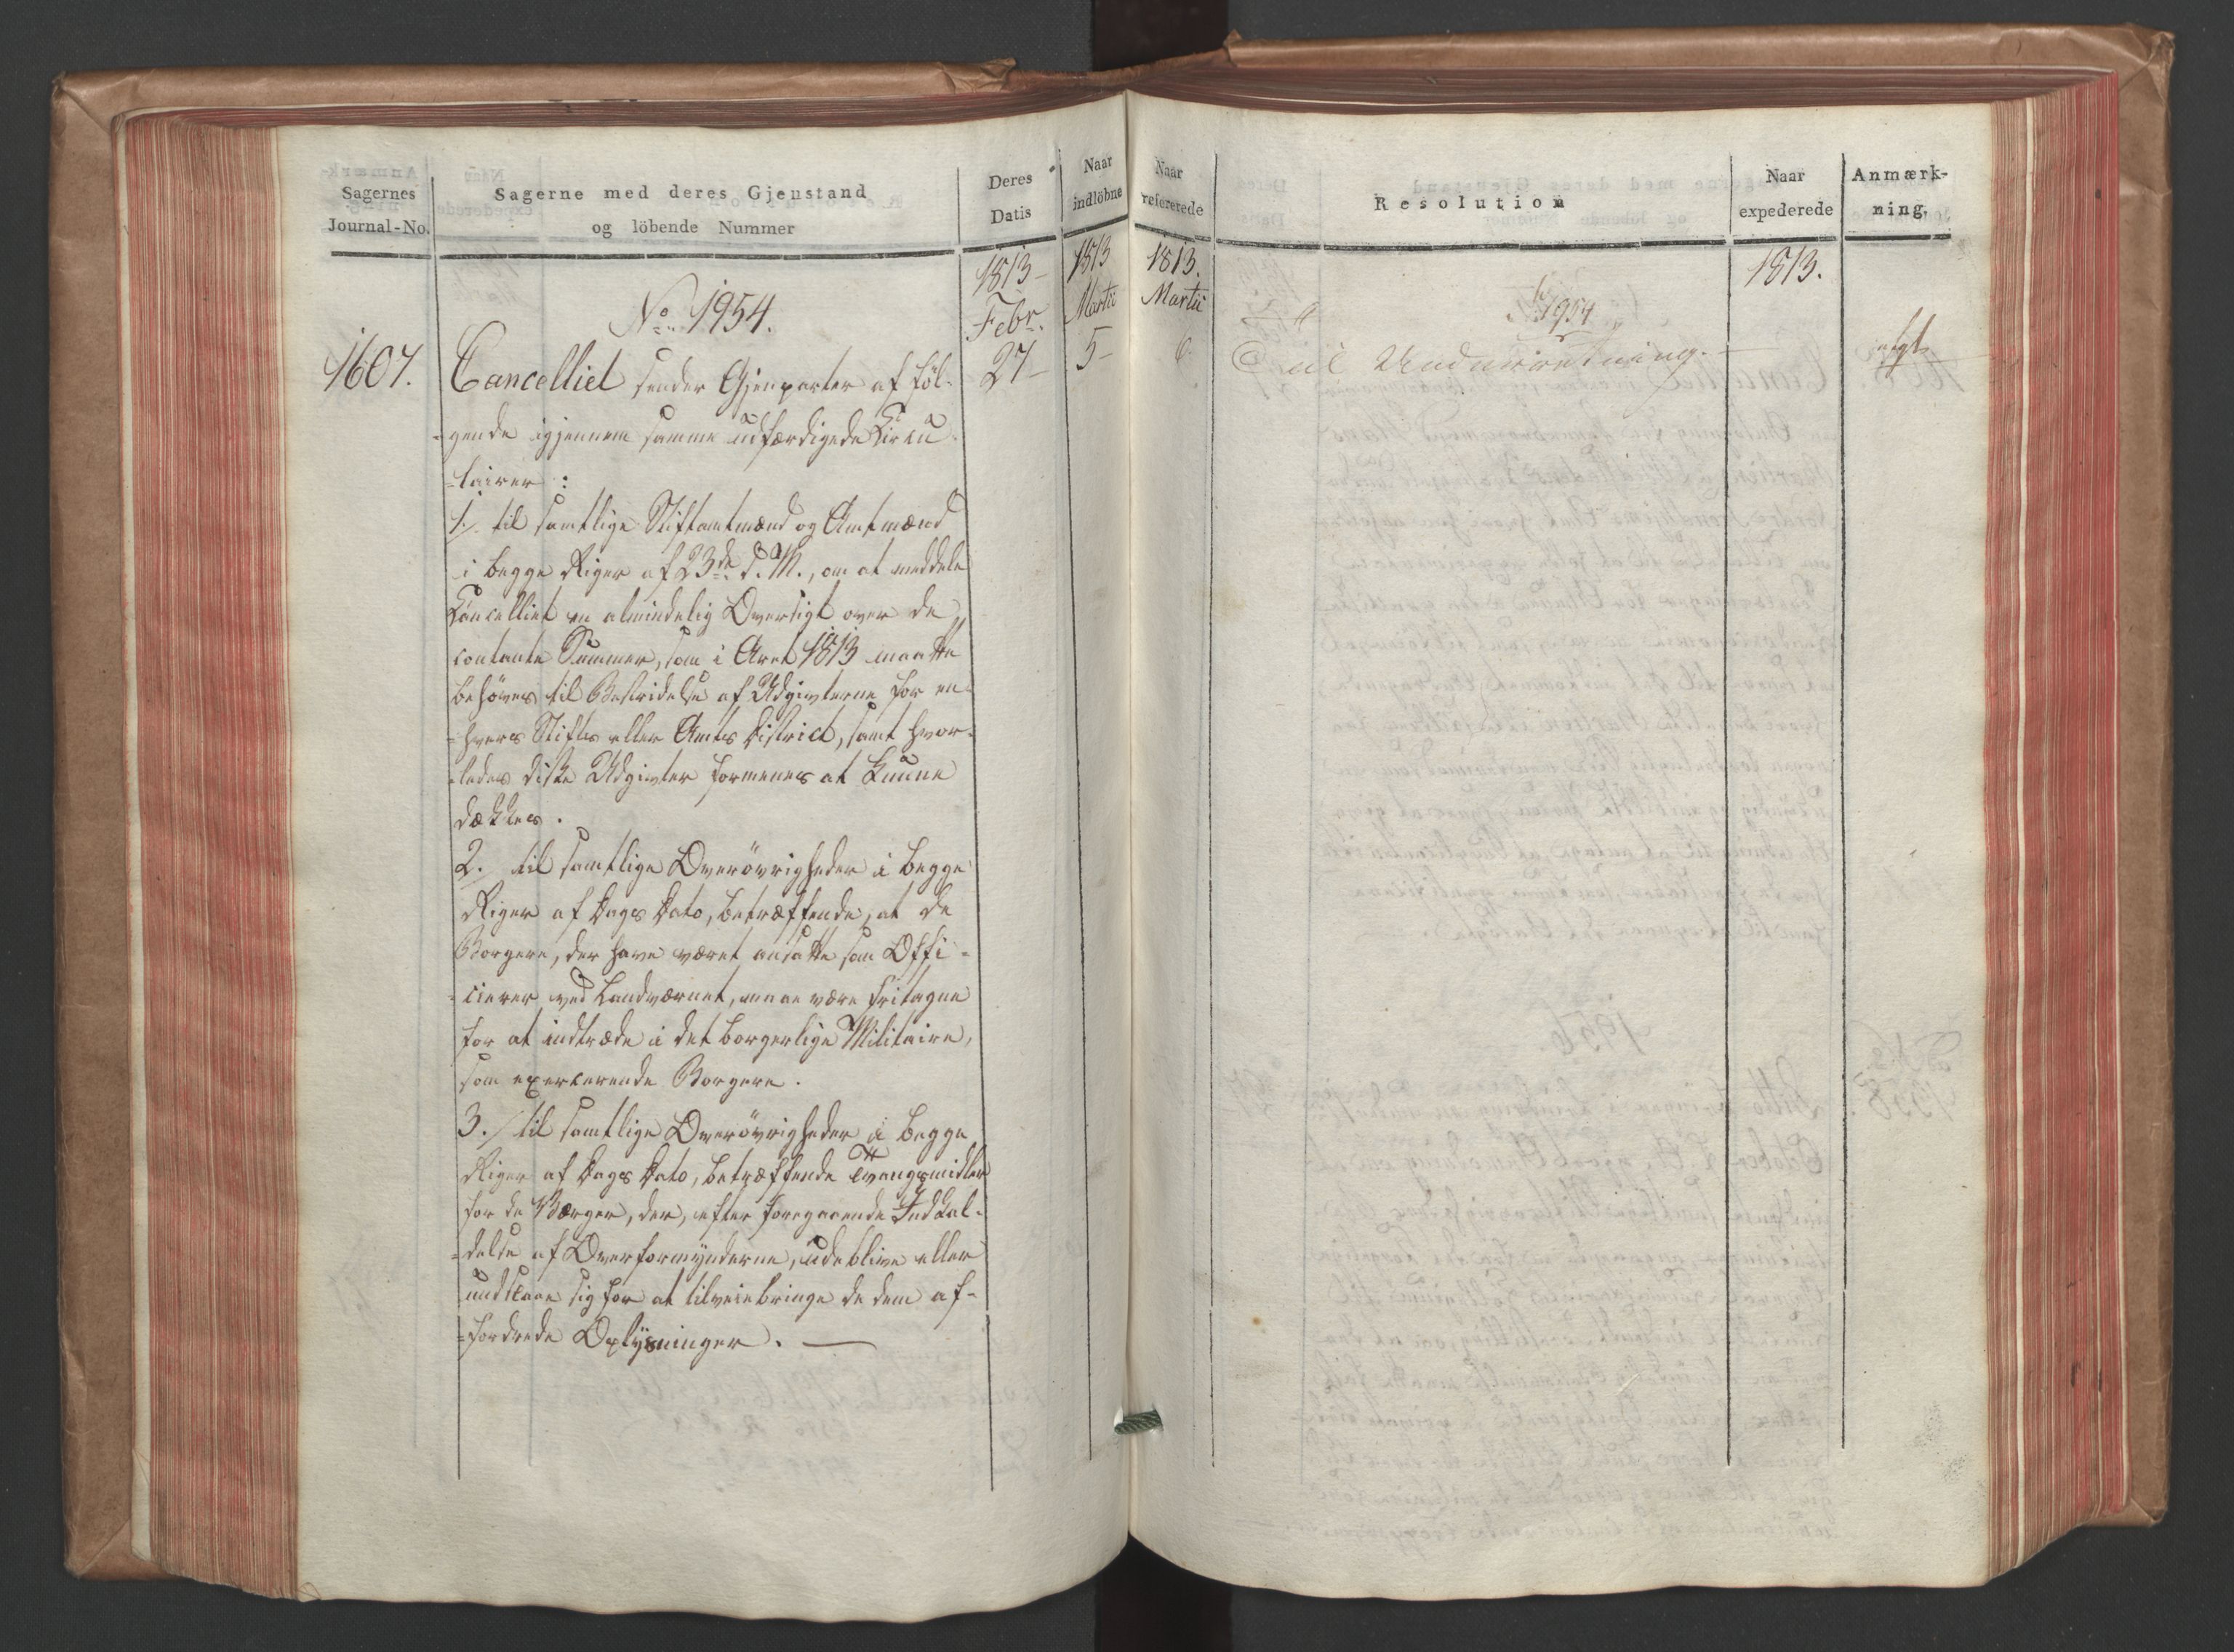 Sagernes
Journal-No.
Sagerne med deres Gjenstand
og löbende Nummer
Deres
Datis
Naar
indlöbne
1813
Febr.
1813
Martii
No. 1954.
1607.
Cancelliet sender Gjenparter af föl-
27
5
-gende igjennem samme udfærdigede Circu
-lairer:
1. til samtlige Stiftamtmænd og Amtmænd
i begge Riger af 23de d. M., om at meddele
Cancelliet en almindelig Oversigt over de
contante Summer, som i Aaret 1813 maatte
behöves til Bestridelse af Udgivterne for en-
-hvers Stifts eller Amts District, samt hvor-
-ledes diske Udgivter formenes at kunne
dækkes.
2. til samtlige Overövrigheder i begge
Riger af Dags Dato, betræffende, at de
Borgere, der have været ansatte som Offi-
-cierer ved Landværnet, maae være fritagne
for at indtræde i det borgerlige Militaire,
som exercerende Borgere.
3. til samtlige Overövrigheder i begge
Riger af Dags Dato, betræffende Tvangsmidler
for de Værger, der, efter foregaaende Indkal-
-delse af Overformynderne, udeblive eller
undslaae sig for at tilveiebringe de dem af-
-fordrede Oplysninger.
Naar
refererede
Resolution
Naar
expederede
Anmærk-
ning.
1813.
Martii
1813.
1954
6
Til Underretning.